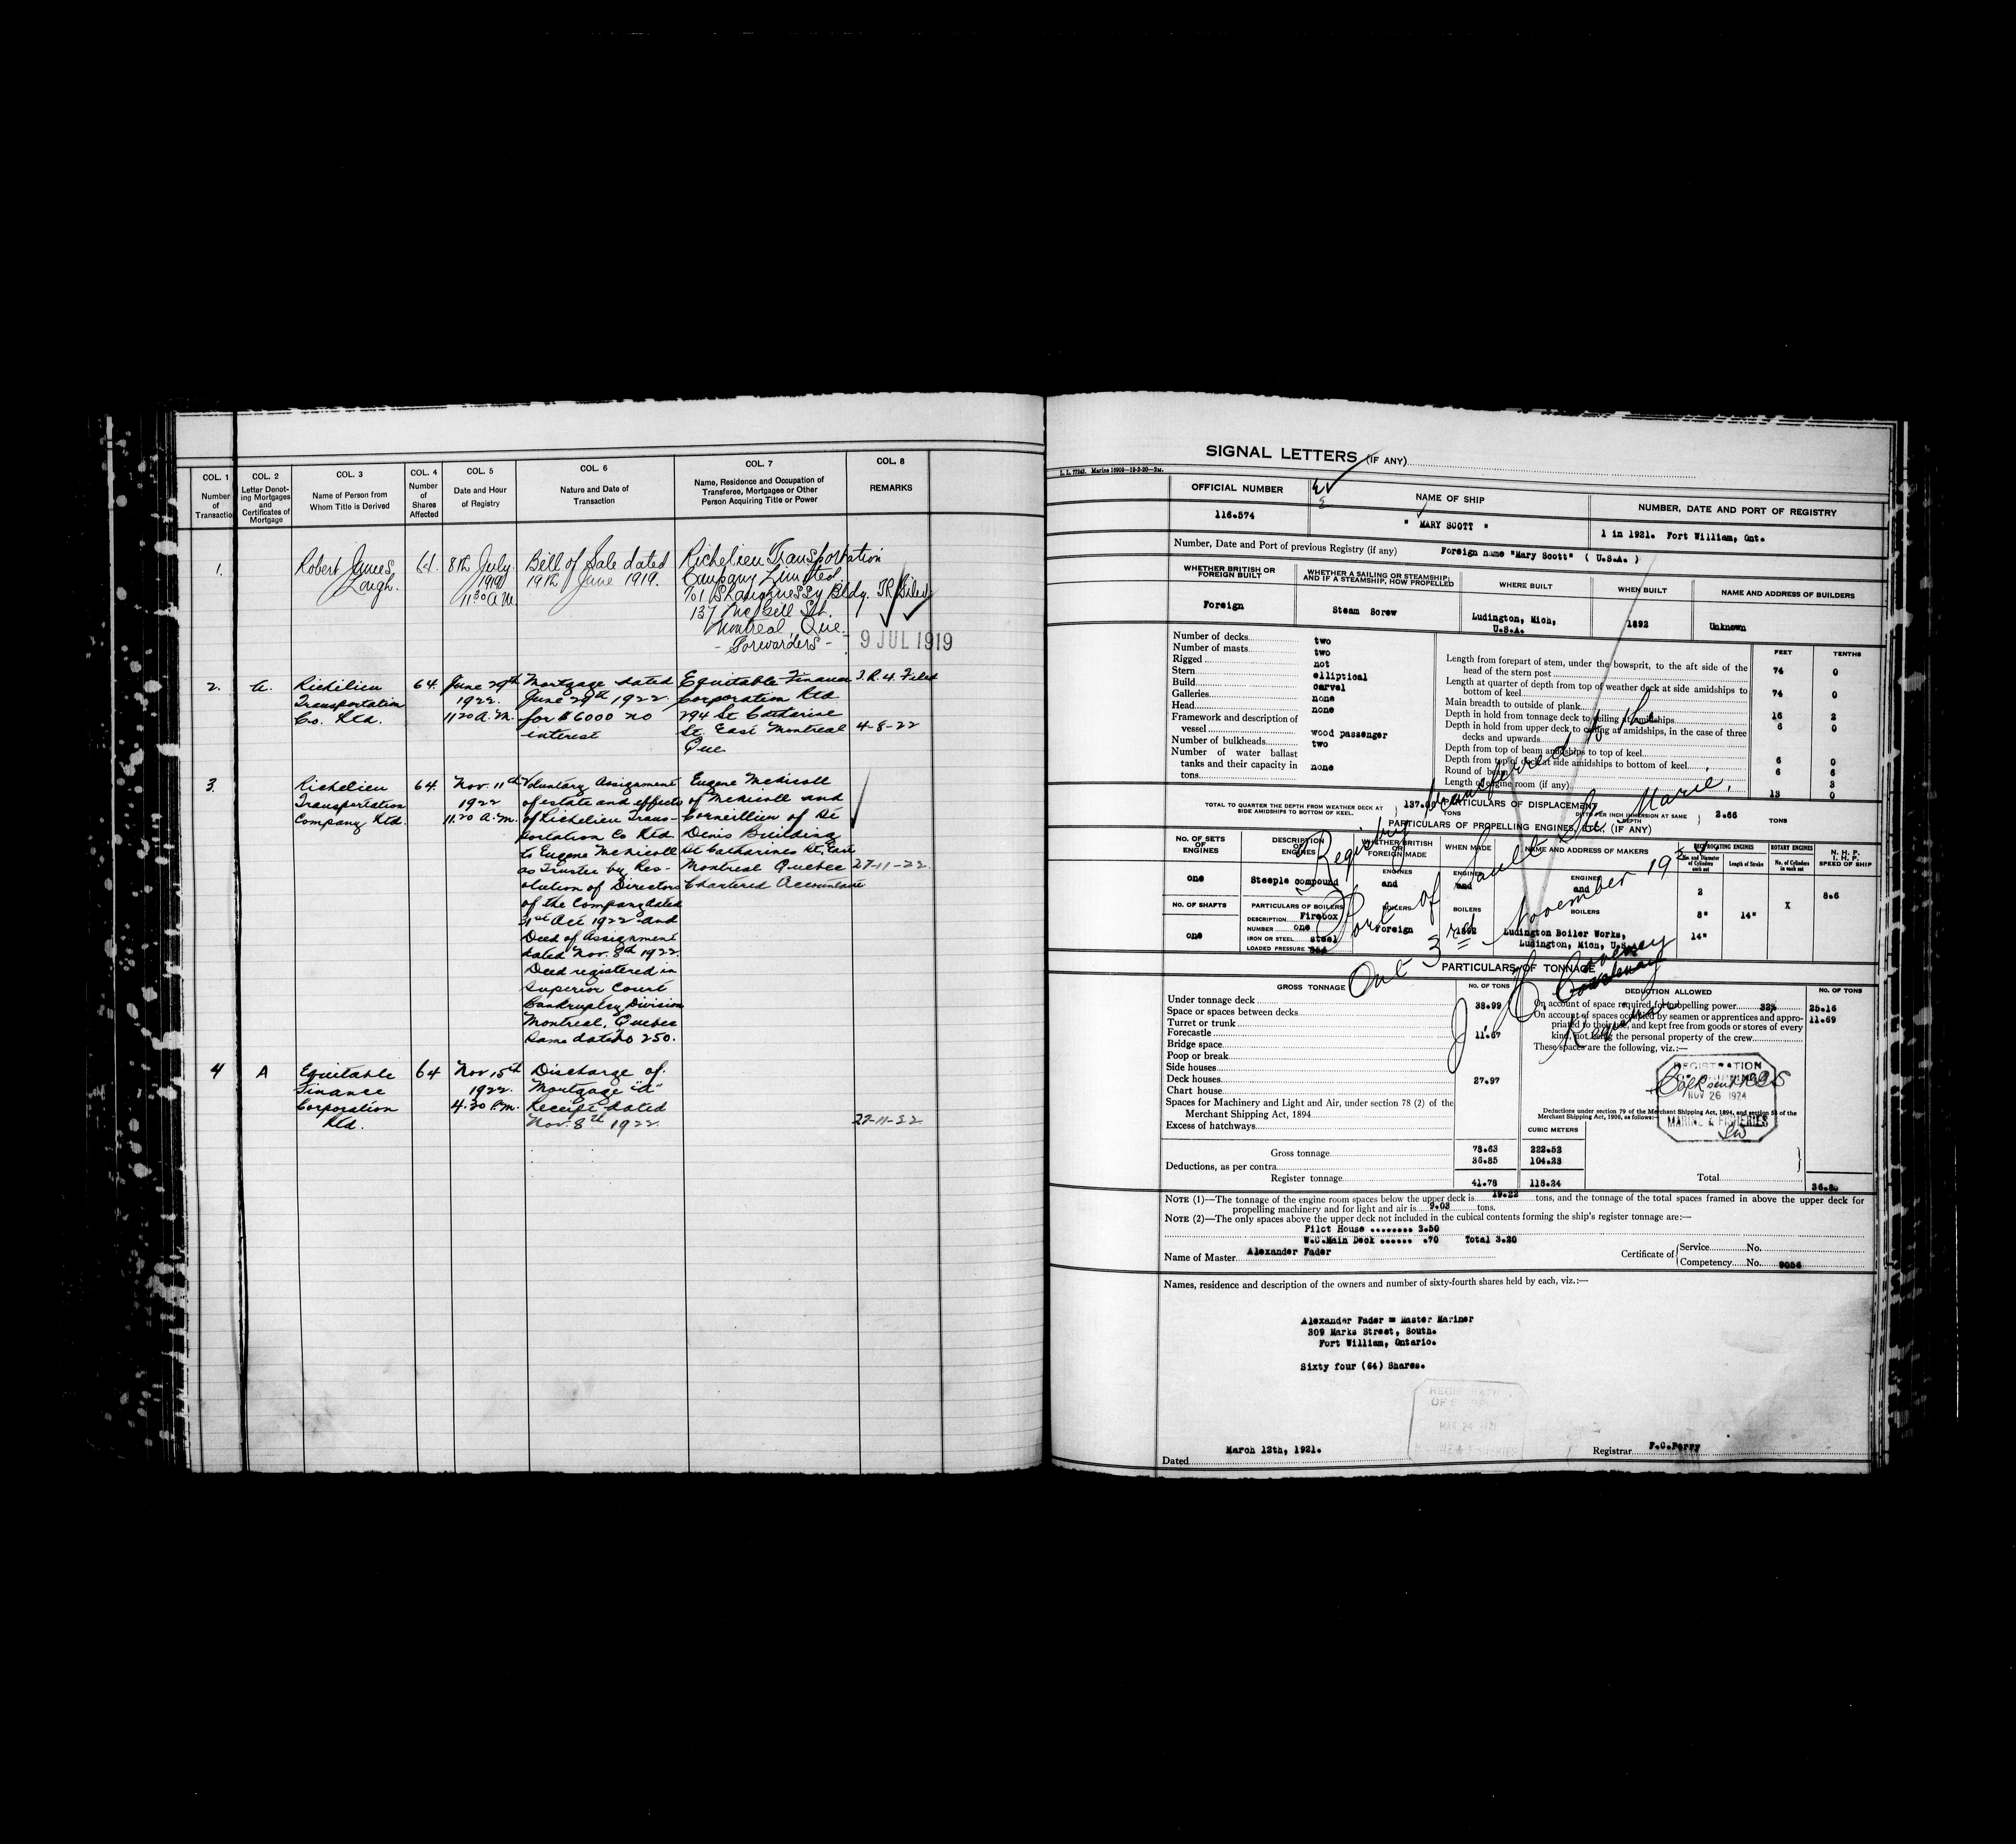 COL. 1
Number
of
Transactio
COL. 2
Letter Denot-
ing Mortgages
and
Certificates of
Mortgage
COL. 3
Name of Person from
Whom Title is Derived
COL. 4
Number
of
Shares
Affected
COL. 5
Date and Hour
of Registry
COL. 6
Nature and Date of
Transaction
COL. 7
Name, Residence and Occupation of
Transferee, Mortgagee or Other
Person Acquiring Title or Power
COL. 8
REMARKS
1.
Robert James
Lough.
64.
8th July
1919
11 30 A M
Bill of Sale dated
19th June 1919.
Richelieu Transportation
Company Limited
701 Shaughnessy Bldg.
137 McGill St.
Montreal Que.
- Forwarders -
9 JUL 1919
2.
Richelieu
Transportation
Co. Ltd.
64.
June 29th
1922.
11 20 A.M.
Mortgage dated
June 29th 1922
for $6000 no
interest
Equitable Finance
Corporation Ltd
294 St Catharine
St. East Montreal
Que
4-8-22
3.
Richelieu
Transportation
Company Ltd.
64.
Nov. 11th
1922
11.20 A.M.
Voluntary Assignment
of estate and effects
of Richelieu Trans-
portation Co Ltd
to Eugene McNicoll
as Trustee by Res-
olution of Directors
of the Company dated
31st Oct 1922 and
Deed of Assignment
dated Nov. 8th 1922
Deed registered in
Superior Court
Bankruptcy Division
Montreal, Quebec
Same date No 250.
Eugene McNicoll
of McNicoll and
of St
Denis Building
St Catharines St. East
Montreal Quebec
Chartered Accountant
27-11-22.
4
A
Equitable
Finance
Corporation
Ltd.
64
Nov 15th
1922.
4.30 P.M.
Discharge of
Mortgage "A"
Receipt dated
Nov. 8th 1922
27-11-22
SIGNAL LETTERS (IF ANY)
L. L. 77243. Marine 16909—19-3-20—2M.
OFFICIAL NUMBER
116.574
NAME OF SHIP
" MARY SCOTT "
NUMBER, DATE AND PORT OF REGISTRY
1 in 1921. Fort William, Ont.
Number, Date and Port of previous Registry (if any) Foreign name "Mary Scott" ( U.S.A. )
WHETHER BRITISH OR
FOREIGN BUILT
Foreign
WHETHER A SAILING OR STEAMSHIP;
AND IF A STEAMSHIP, HOW PROPELLED
Steam Screw
WHERE BUILT
Ludington, Mich,
U.S.A.
WHEN BUILT
1892
NAME AND ADDRESS OF BUILDERS
Unknown
Number of decks two
Number of masts two
Rigged not
Stern elliptical
Build carvel
Galleries none
Head none
Framework and description of
vessel wood passenger
Number of bulkheads two
Number of water ballast
tanks and their capacity in
tons none
FEET TENTHS
Length from forepart of stem, under the bowsprit, to the aft side of the
head of the stern post 74 0
Length at quarter of depth from top of weather deck at side amidships to
bottom of keel 74 0
Main breadth to outside of plank 16 2
Depth in hold from tonnage deck to ceiling at amidships 6 0
Depth in hold from upper deck to ceiling at amidships, in the case of three
decks and upwards
Depth from top of beam amidships to top of keel 6 0
Depth from top of deck at side amidships to bottom of keel 6 6
Round of beam 3
Length of engine room (if any) 13 0
PARTICULARS OF DISPLACEMENT
TOTAL TO QUARTER THE DEPTH FROM WEATHER DECK AT
SIDE AMIDSHIPS TO BOTTOM OF KEEL.
TONS
DITTO PER INCH IMMERSION AT SAME
DEPTH
2.66 TONS
PARTICULARS OF PROPELLING ENGINES, ETC. (IF ANY)
NO. OF SETS
OF
ENGINES
one
NO. OF SHAFTS
one
DESCRIPTION
OF
ENGINES
Steeple compound
PARTICULARS OF BOILERS
DESCRIPTION Firebox
NUMBER one
IRON OR STEEL steel
LOADED PRESSURE
WHETHER BRITISH
OR
FOREIGN MADE
ENGINES
and
BOILERS
Foreign
WHEN MADE
ENGINES
and
BOILERS
1892
NAME AND ADDRESS OF MAKERS
ENGINES
and
BOILERS
Ludington Boiler Works,
Ludington, Mich, U.S.A.
RECIPROCATING ENGINES
No. and Diameter
of Cylinders
each set
2
8"
14"
Length of Stroke
14"
ROTARY ENGINES
No. of Cylinders
in each set
X
N. H. P.
I. H. P.
SPEED OF SHIP
8.6
Registry transferred to the
Port of Sault Ste Marie,
Ont 3rd November 19
Registrar
PARTICULARS OF TONNAGE
GROSS TONNAGE NO. OF TONS
Under tonnage deck 38.99
Space or spaces between decks
Turret or trunk
Forecastle 11.67
Bridge space
Poop or break
Side houses
Deck houses 27.97
Chart house
Spaces for Machinery and Light and Air, under section 78 (2) of the
Merchant Shipping Act, 1894
Excess of hatchways
CUBIC METERS
Gross tonnage 78.63 222.52
Deductions, as per contra 36.85 104.28
Register tonnage 41.78 118.24
DEDUCTION ALLOWED NO. OF TONS
On account of space required for propelling power 32% 25.16
On account of spaces occupied by seamen or apprentices and appro- 11.69
priated to their use, and kept free from goods or stores of every
kind, not being the personal property of the crew
These spaces are the following, viz.:—
REGISTRATION
OF SHIPPING
NOV 26 1924
MARINE & FISHERIES
Deductions under section 79 of the Merchant Shipping Act, 1894, and section 54 of the
Merchant Shipping Act, 1906, as follows:—
Total 36.85
NOTE (1)—The tonnage of the engine room spaces below the upper deck is 19.22 tons, and the tonnage of the total spaces framed in above the upper deck for
propelling machinery and for light and air is 9.03 tons.
NOTE (2)—The only spaces above the upper deck not included in the cubical contents forming the ship's register tonnage are:—
Pilot House ........ 2.50
W.C.Main Deck ...... .70 Total 3.20
Name of Master Alexander Fader
Certificate of
Service No.
Competency No. 9056
Names, residence and description of the owners and number of sixty-fourth shares held by each, viz.:—
Alexander Fader = Master Mariner
309 Marks Street, South.
Fort William, Ontario.
Sixty four (64) Shares.
MAR 24 1921
Dated March 12th, 1921.
Registrar F.C.Perry